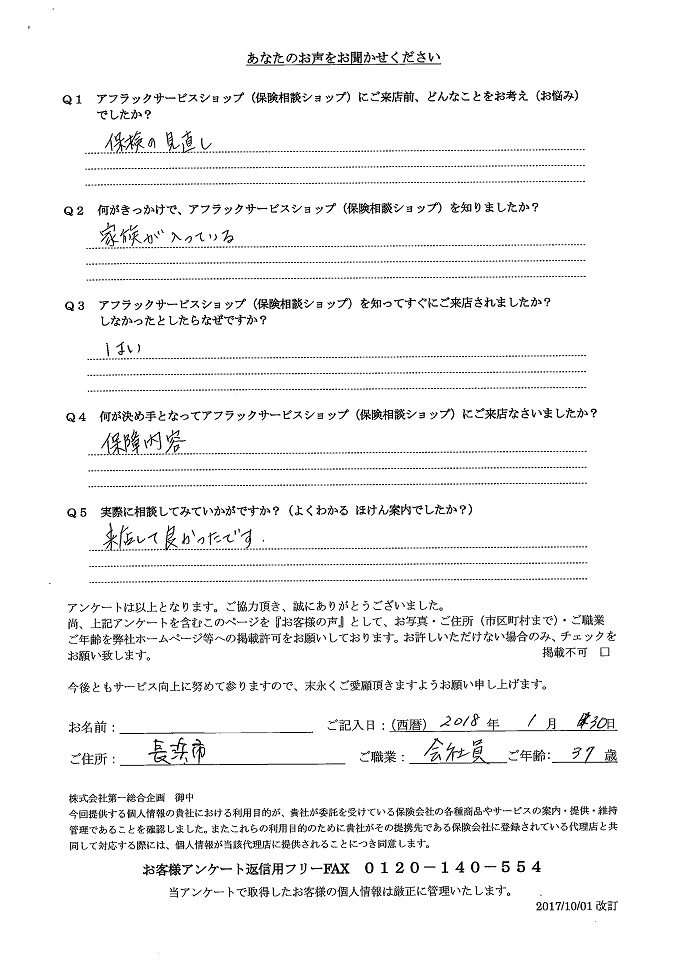 あなたのお声をお聞かせください
Q1 アフラックサービスショップ（保険相談ショップ）にご来店前、どんなことをお考え（お悩み）
でしたか？
保検の見直し
Q2 何がきっかけで、アフラックサービスショップ（保険相談ショップ）を知りましたか？
家族が入っている
Q3 アフラックサービスショップ（保険相談ショップ）を知ってすぐにご来店されましたか？
しなかったとしたらなぜですか？
はい
Q4 何が決め手となってアフラックサービスショップ（保険相談ショップ）にご来店なさいましたか？
保障内容
Q5 実際に相談してみていかがですか？（よくわかる ほけん案内でしたか？）
来店して良かったです.
アンケートは以上となります。ご協力頂き、誠にありがとうございました。
尚、上記アンケートを含むこのページを『お客様の声』として、お写真・ご住所（市区町村まで）・ご職業
ご年齢を弊社ホームページ等への掲載許可をお願いしております。お許しいただけない場合のみ、チェックを
お願い致します。 掲載不可 □
今後ともサービス向上に努めて参りますので、末永くご愛顧頂きますようお願い申し上げます。
お名前： ご記入日：（西暦） 2018 年 1 月 30日
ご住所： 長浜市 ご職業： 会社員 ご年齢： 37 歳
株式会社第一総合企画 御中
今回提供する個人情報の貴社における利用目的が、貴社が委託を受けている保険会社の各種商品やサービスの案内・提供・維持
管理であることを確認しました。またこれらの利用目的のために貴社がその提携先である保険会社に登録されている代理店と共
同して対応する際には、個人情報が当該代理店に提供されることにつき同意します。
お客様アンケート返信用フリーFAX 0120－140－554
当アンケートで取得したお客様の個人情報は厳正に管理いたします。
2017/10/01 改訂